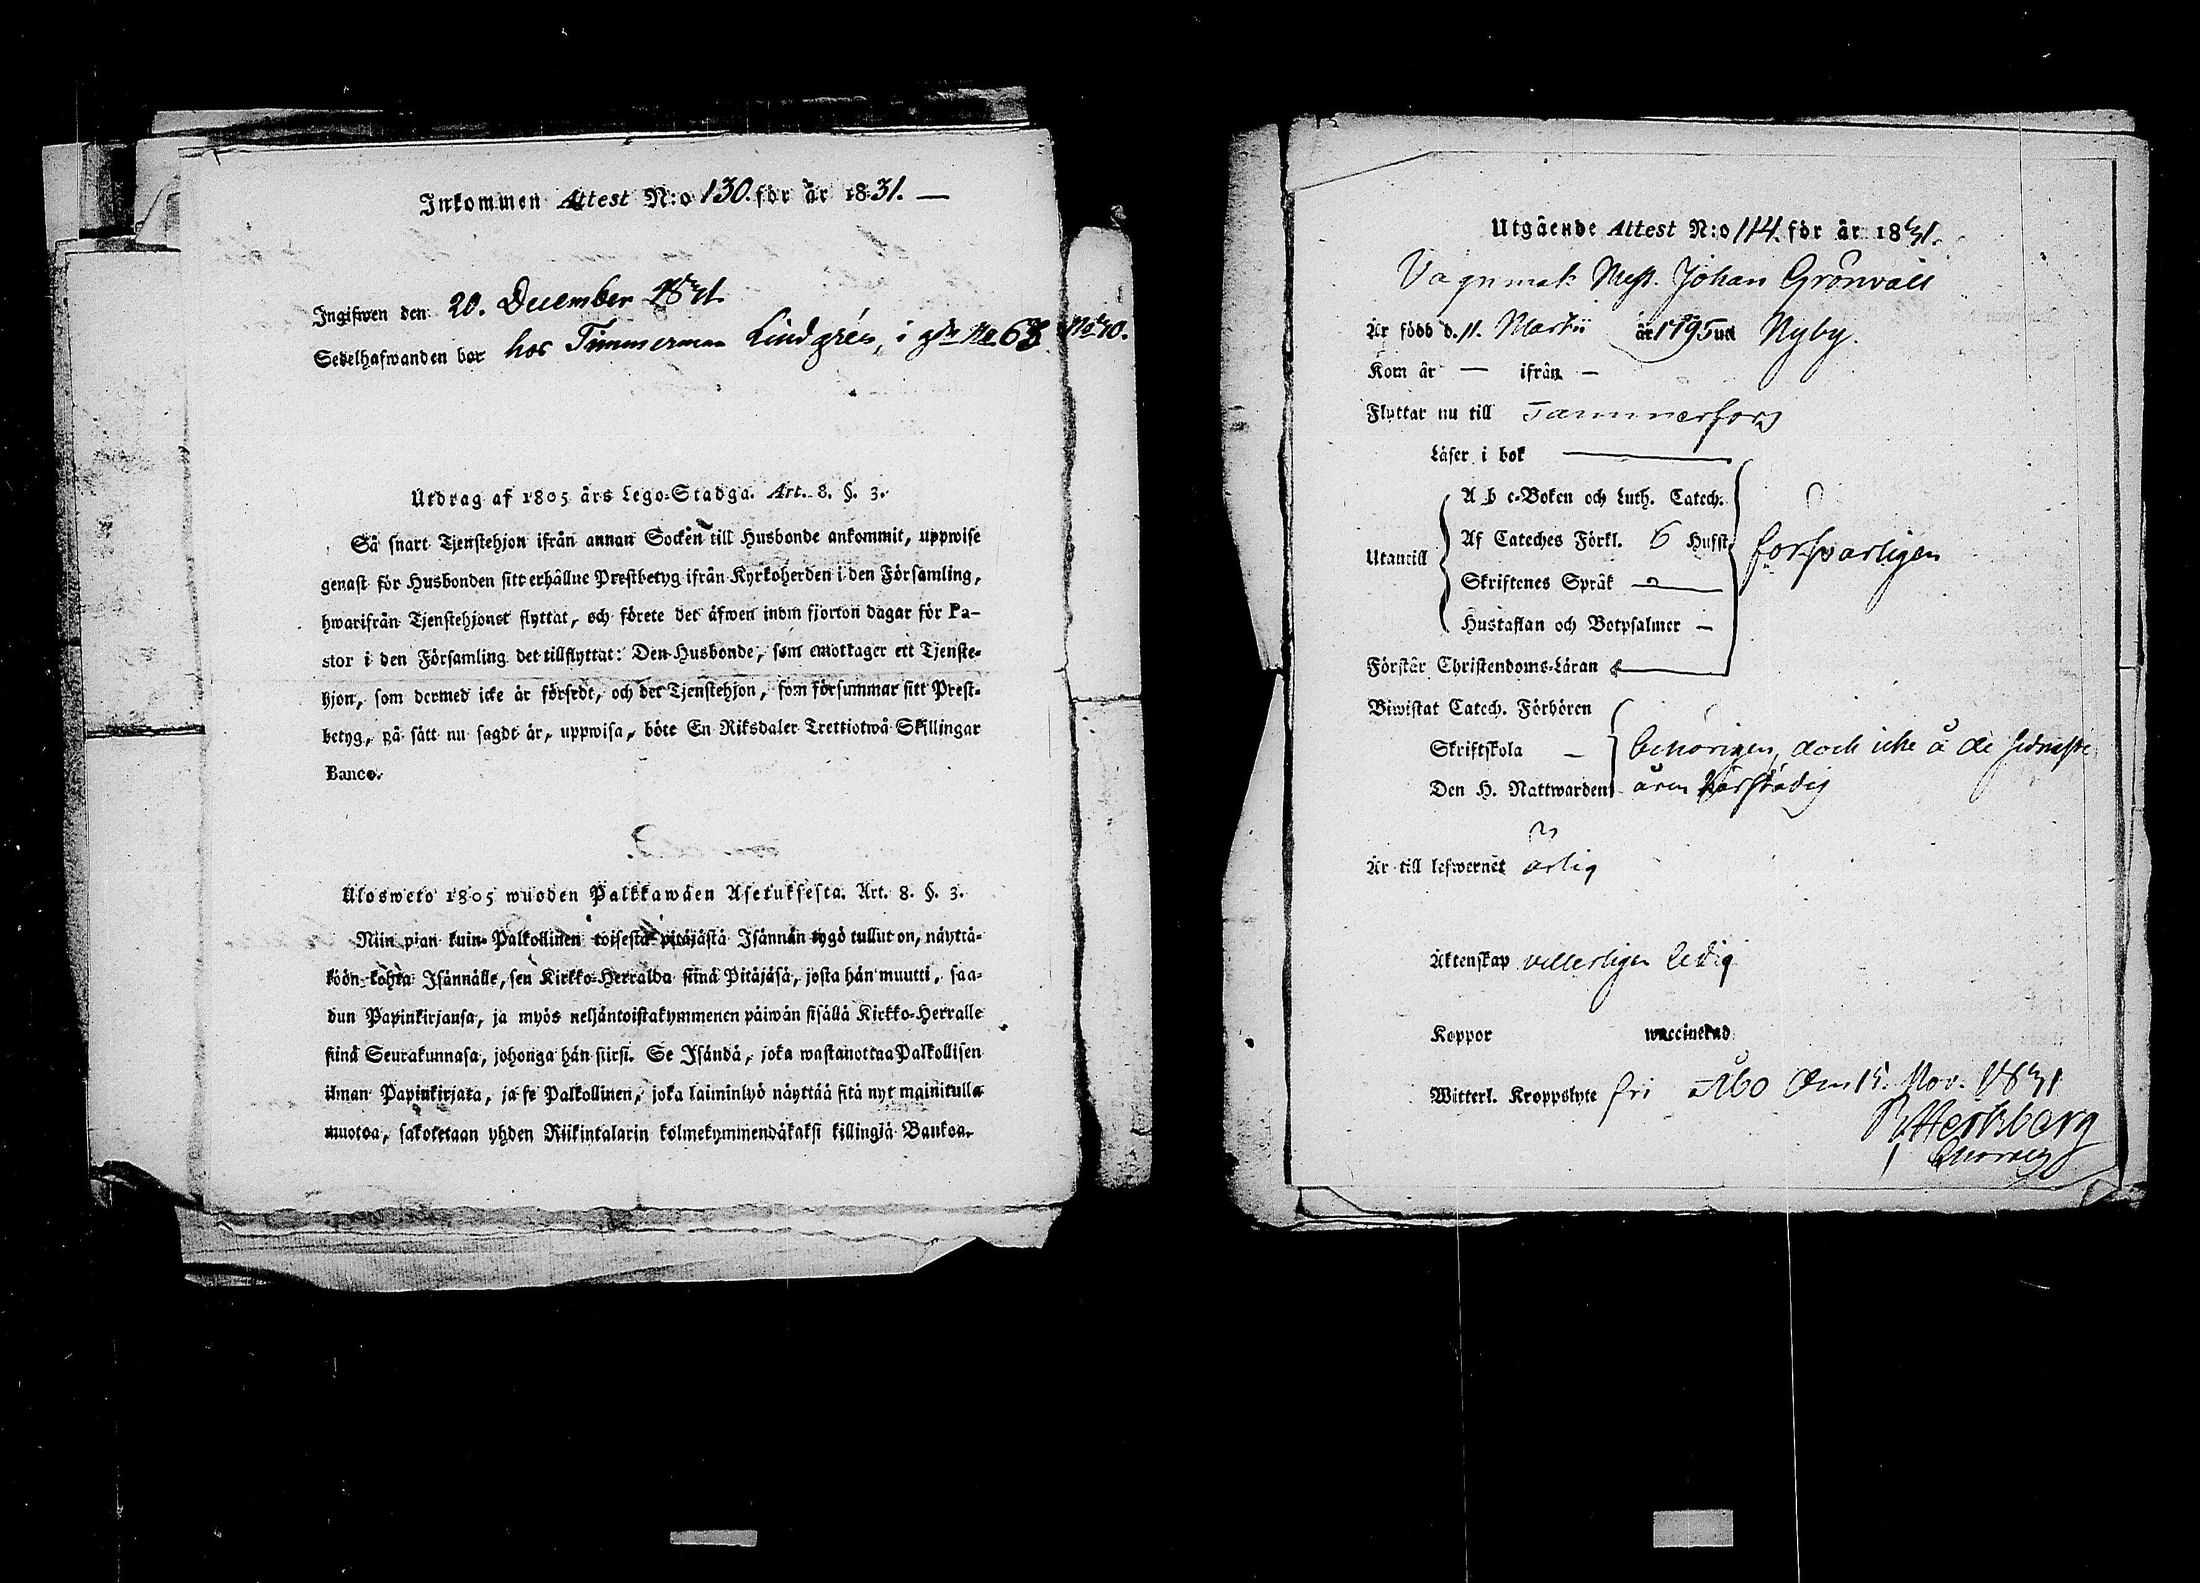 Inkommen Attest N:o 130. för år 1831. —
Ingifwen den 20. December 1831.
Sedelhafwanden bor hos Timmerman Lindgrén, i gdn No 68
Utdrag af 1805 års Lego-Stadga. Art. 8. §. 3.
Så snart Tjenstehjon ifrån annan Socken till Husbonde ankommit, uppwise
genast för Husbonden sitt erhållne Prestbetyg ifrån Kyrkoherden i den Församling,
hwarifrån Tjenstehjonet flyttat, och förete det äfwen inom fjorton dagar för Pa-
stor i den Församling det tillflyttat: Den Husbonde, som emottager ett Tjenste-
hjon, som dermed icke är försedt, och det Tjenstehjon, som försummar sitt Prest-
betyg, på sätt nu sagdt är, uppwisa, böte En Riksdaler Trettiotwå Skillingar
Banco.
Ulosweto 1805 wuoden Palkkawäen Asetuksesta. Art. 8. §. 3.
Niin pian kuin Palkollinen toisesta pitäjästä Isännän tygö tullut on, näyttä-
köön kohta Isännälle, sen Kirkko-Herralda siinä Pitäjäsä, josta hän muutti, saa-
dun Papinkirjansa, ja myös neljäntoistakymmenen päiwän sisällä Kirkko-Herralle
siinä Seurakunnasa, johonga hän siirsi. Se Isändä, joka wastanottaa Palkollisen
ilman Papinkirjata, ja se Palkollinen, joka laiminlyö näyttää sitä nyt mainitulla
muotoa, sakotetaan yhden Riikintalarin kolmekymmendäkaksi killingiä Bankoa.
Utgående Attest N:o 114. för år 1831.
Vagnmak. Mest. Johan Grönvall
Är född d. 11. Martii år 1795 uti Nyby.
Kom år — ifrån —
Flyttar nu till Tammerfors
Läser i bok
A b c-Boken och Luth. Catech.
Af Cateches Förkl. 6 Hufst.
Utantill
försvarligen
Skriftenes Språk
Hustaflan och Botpsalmer —
Förstår Christendoms-Läran
Biwistat Catech. Förhören
Skriftskola — behörigen, dock icke å de sednaste
Den H. Nattwarden åren härstädes
Är till lefwernet ärlig
Äktenskap vitterligen ledig
Koppor waccinerad
Witterl. Kroppslyte fri Åbo den 15. Nov. 1831